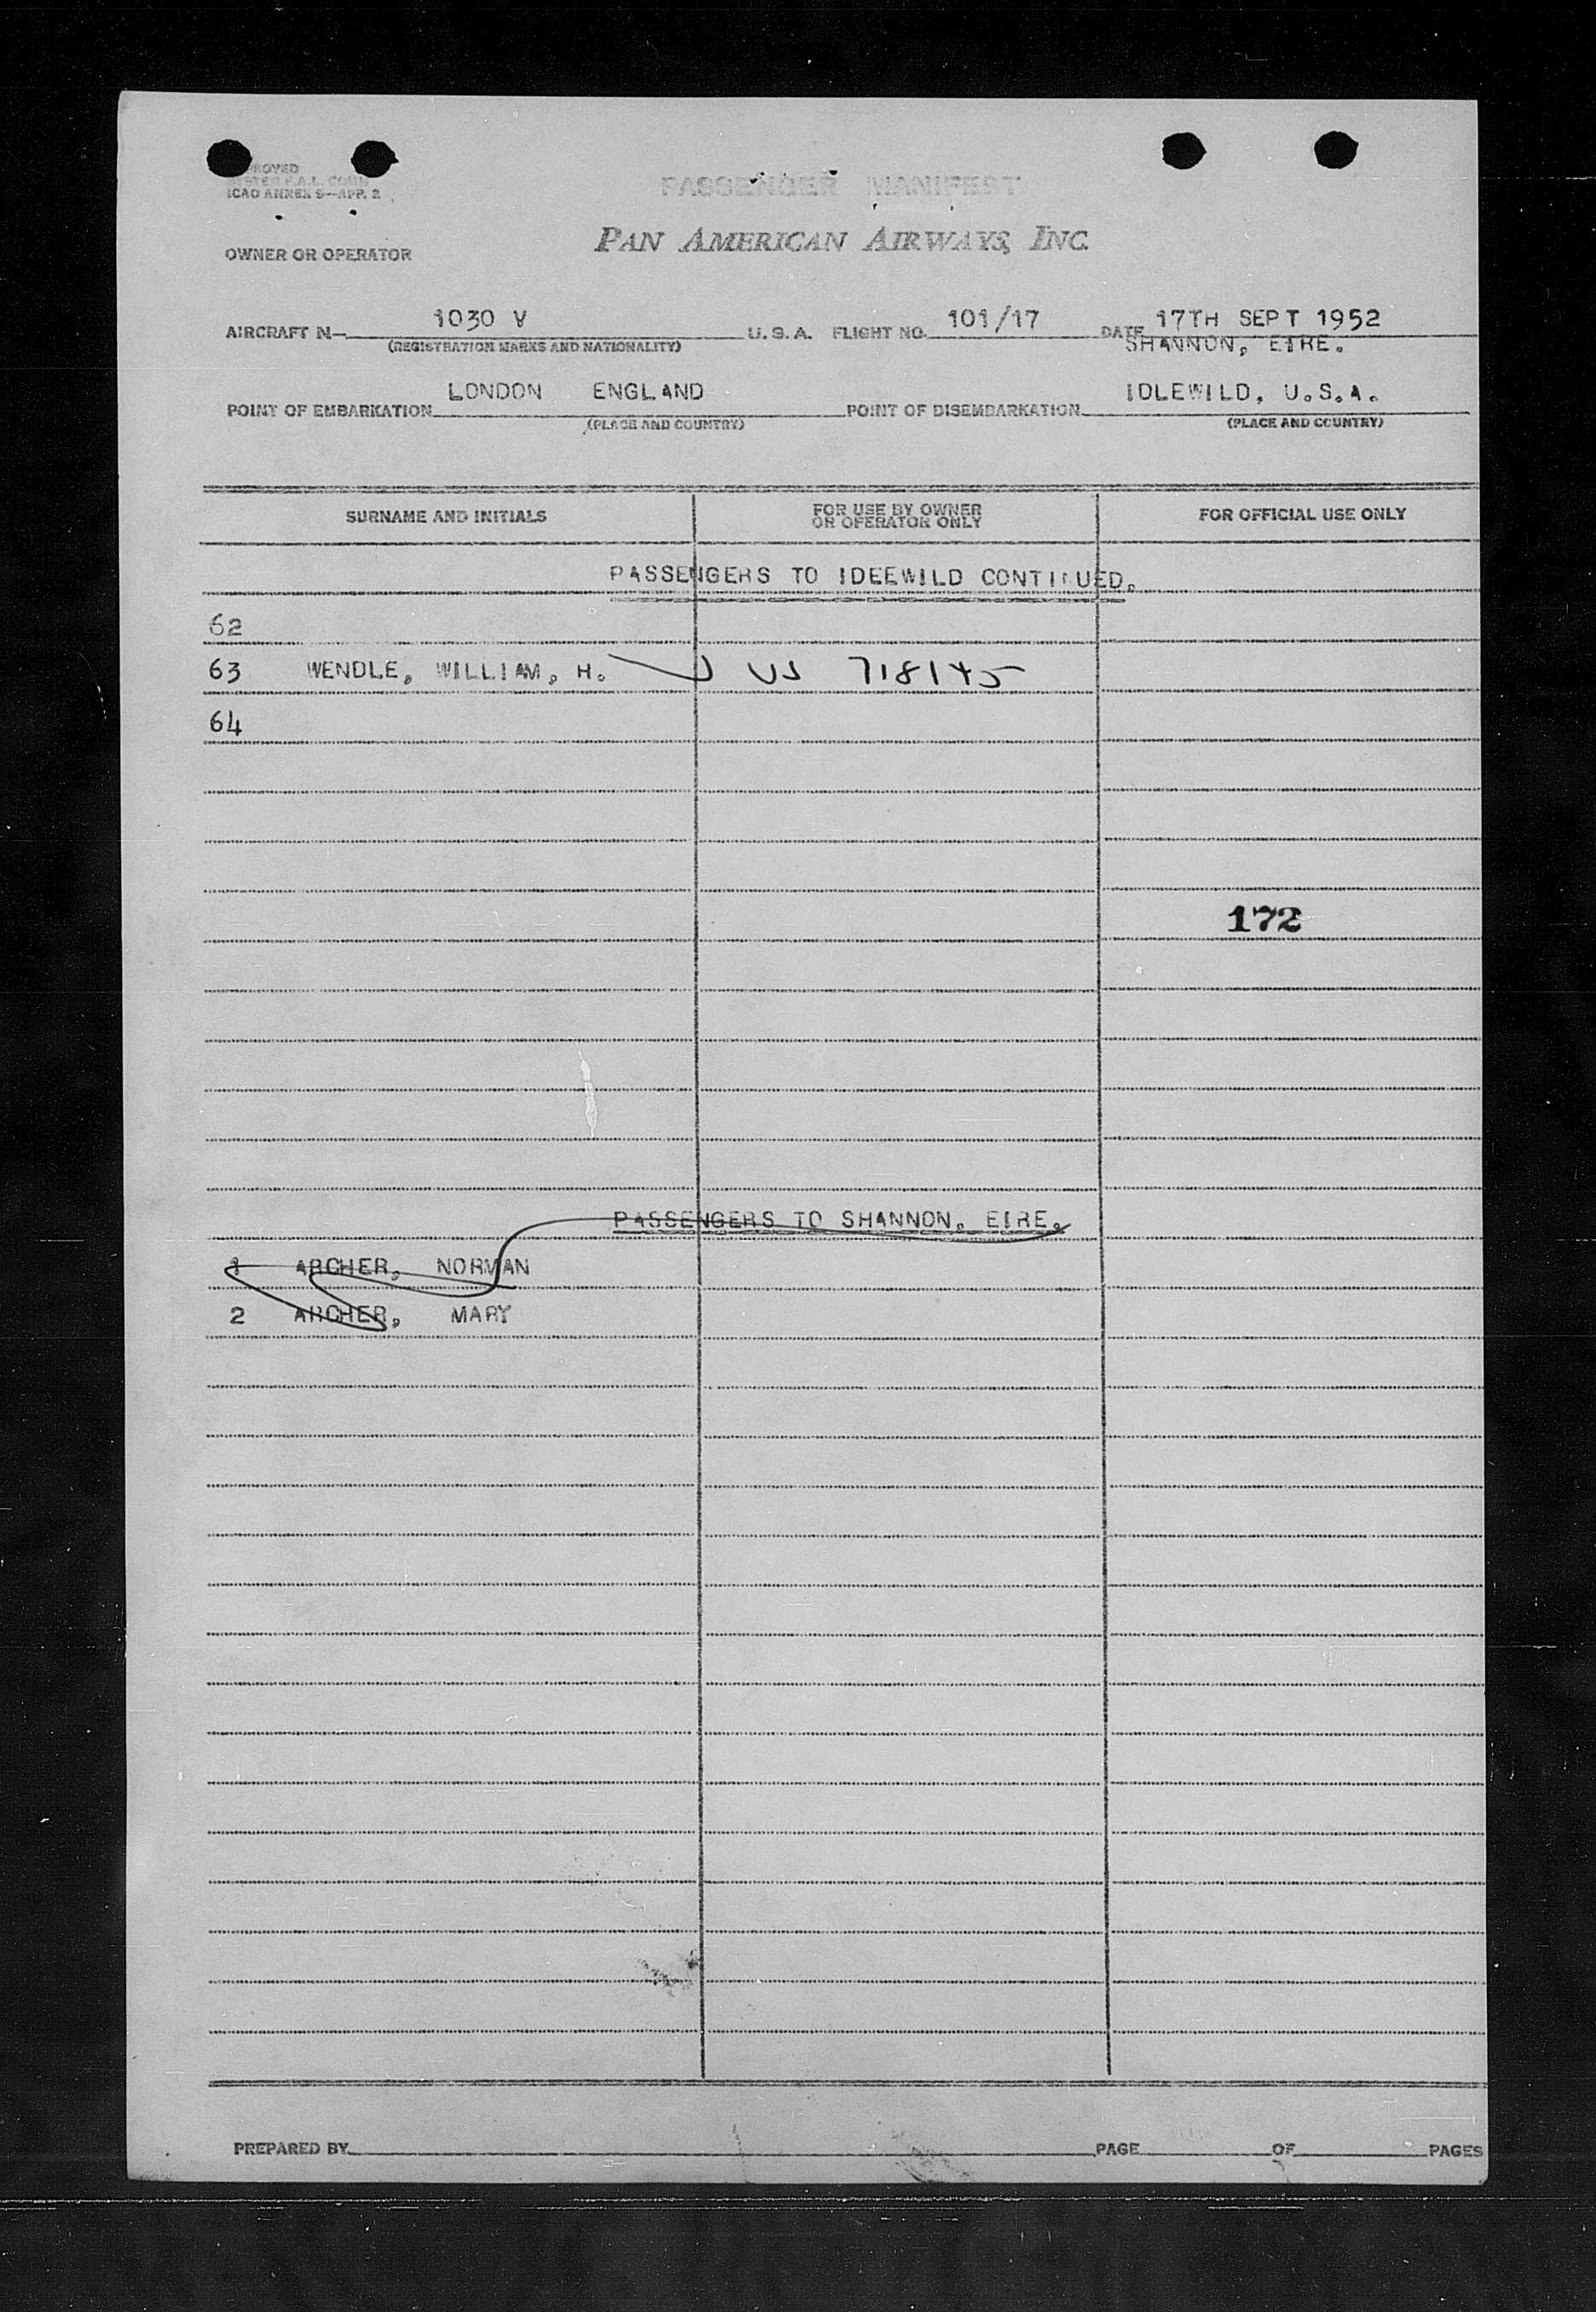 ICAO ANNEX 9—APP. 2
PASSENGER MANIFEST
PAN AMERICAN AIRWAYS, INC.
OWNER OR OPERATOR
AIRCRAFT N— 1030 V U.S.A. FLIGHT NO. 101/17 DATE 17TH SEPT 1952
(REGISTRATION MARKS AND NATIONALITY)
SHANNON, EIRE.
POINT OF EMBARKATION LONDON ENGLAND POINT OF DISEMBARKATION IDLEWILD, U.S.A.
(PLACE AND COUNTRY) (PLACE AND COUNTRY)
SURNAME AND INITIALS FOR USE BY OWNER OR OPERATOR ONLY FOR OFFICIAL USE ONLY
PASSENGERS TO IDEEWILD CONTINUED.
62
63 WENDLE, WILLIAM, H. US 718145
64
172
PASSENGERS TO SHANNON, EIRE.
1 ARCHER, NORMAN
2 ARCHER, MARY
PREPARED BY PAGE OF PAGES